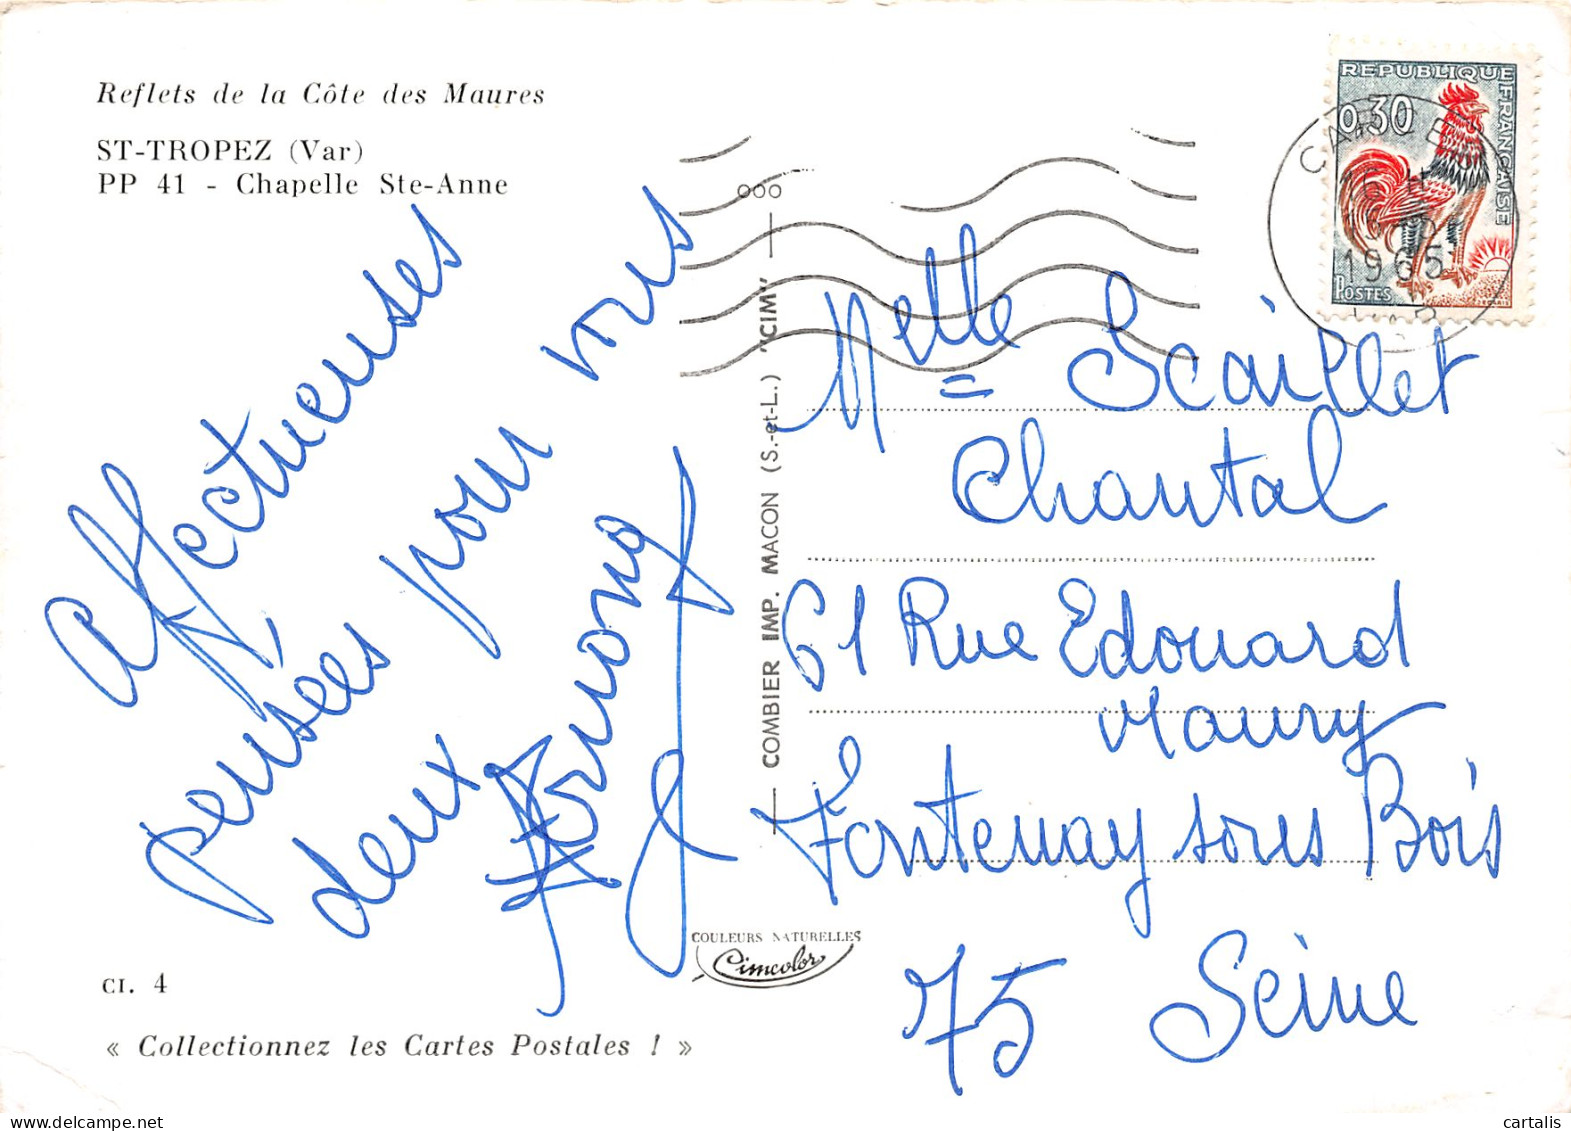 Reflets de la Côte des Maures
ST-TROPEZ (Var)
PP 41 - Chapelle Ste-Anne
Affectueuses
pensées pour vous
deux
CI. 4
« Collectionnez les Cartes Postales ! »
COMBIER IMP. MACON (S.-et-L.) "CIM"
COULEURS NATURELLES
Cimcolor
REPUBLIQUE FRANÇAISE
0,30
POSTES
1965
VAR
Melle = Scaillet
Chantal
61 Rue Edouard
Maury
Fontenay sous Bois
75 Seine
cartalis